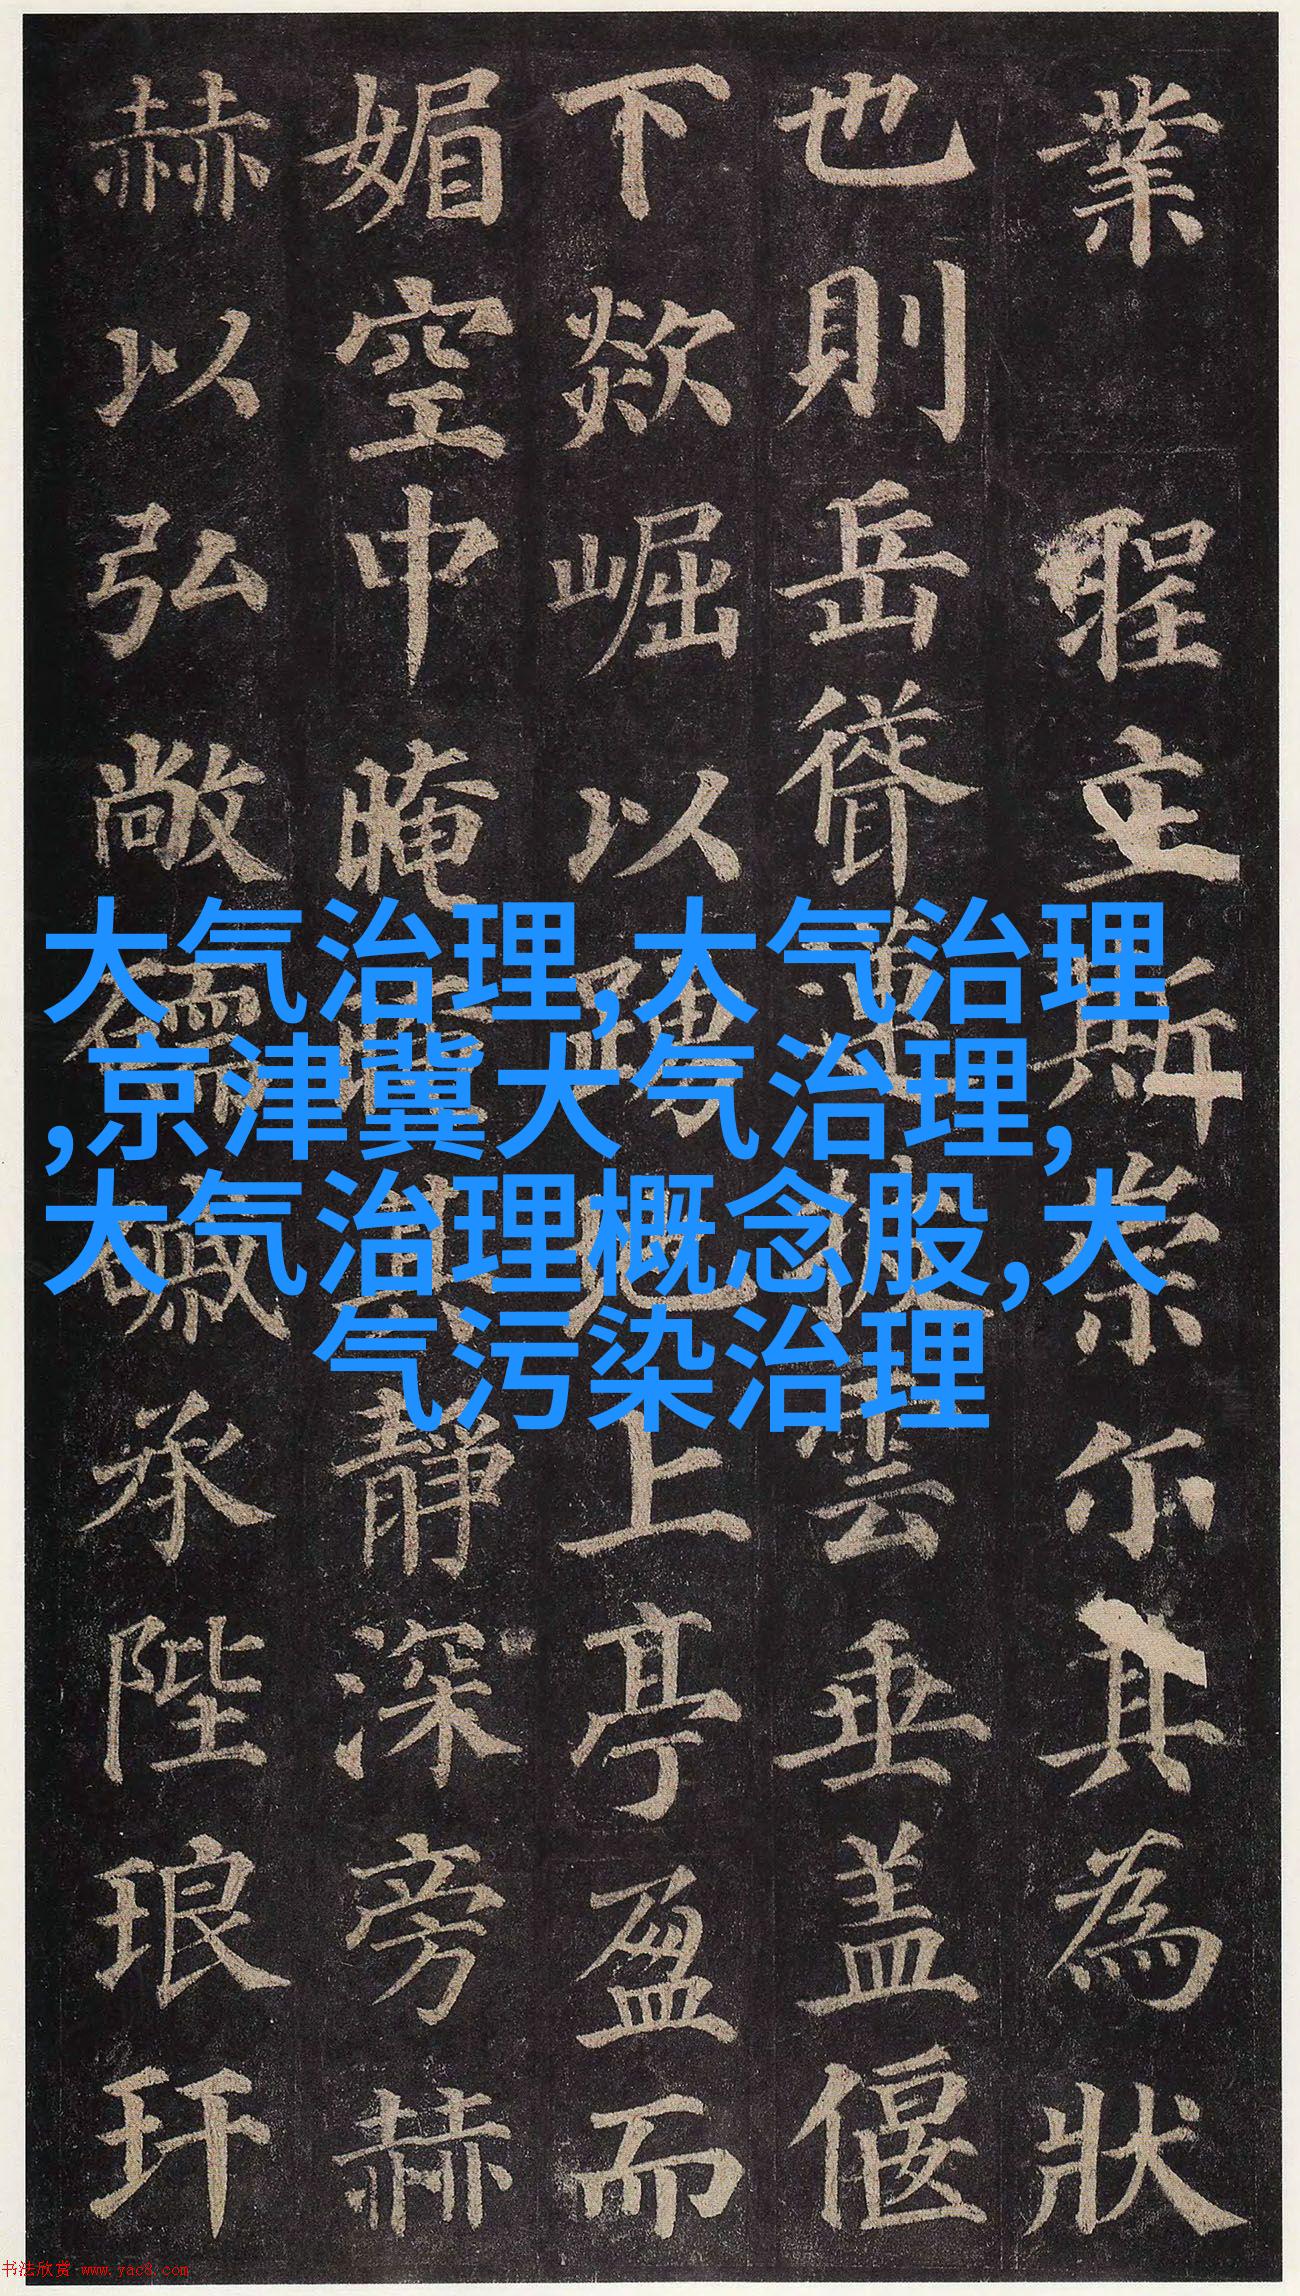 業 聖立斯業尔其為狀
也則岳聳蓮披雲垂盖偃
下欻崛以踴地上亭盈而
媚空中晻曖其靜深旁赫
赫以弘敞礝磩承陛琅玕
大气治理,大气治理
,京津冀大气治理,
大气治理概念股,大
气污染治理
书法欣赏 www.yac8.com